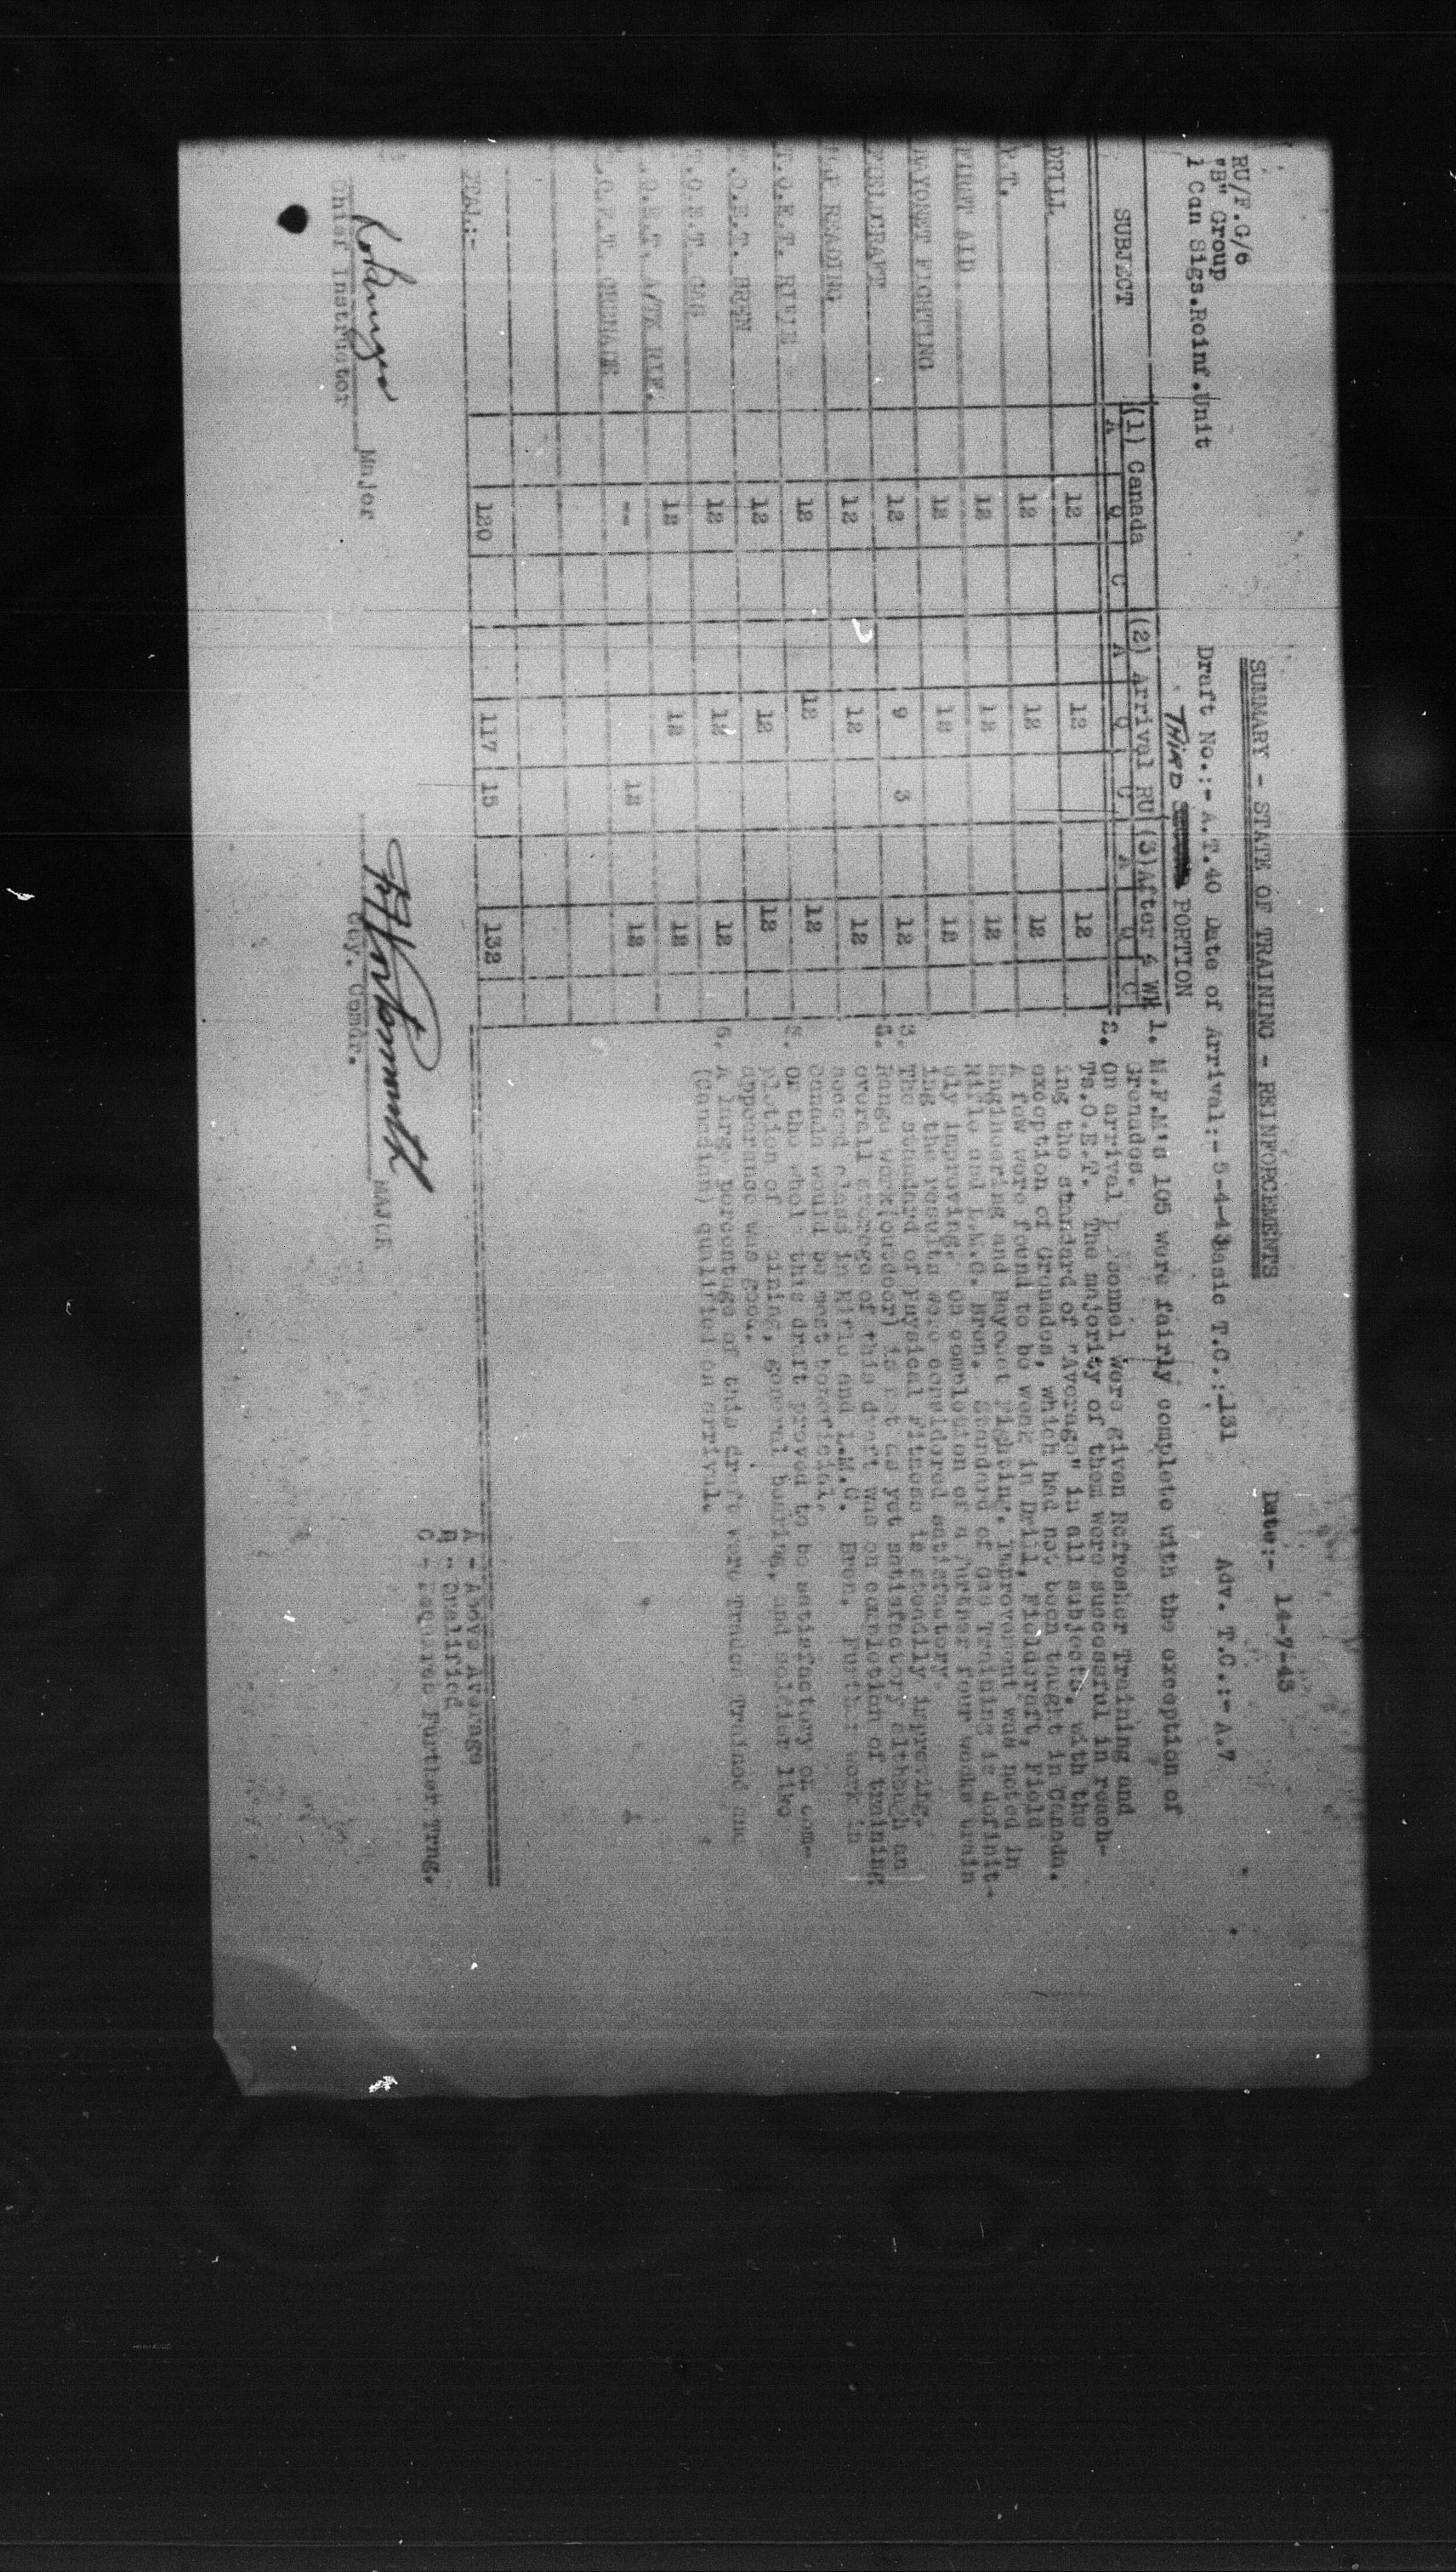 RU/F.G/6
"B" Group
1 Can Sigs.Reinf.Unit
Date:- 14-7-43
SUMMARY - STATE OF TRAINING - REINFORCEMENTS
Draft No.:- A.T.40 Date of Arrival:- 5-4-43 Basic T.C.:-131 Adv. T.C.:- A.7
THIRD PORTION
SUBJECT (1) Canada (2) Arrival RU (3)After 4 Wk
A Q C A Q C A Q C
DRILL 12 12 12
P.T. 12 12 12
FIRST AID 12 12 12
BAYONET FIGHTING 12 12 12
FIELDCRAFT 12 9 3 12
MAP READING 12 12 12
T.O.E.T. RIFLE 12 12 12
T.O.E.T. BREN 12 12 12
T.O.E.T. GAS 12 12 12
T.O.E.T. A/TK RIF. 12 12 12
T.O.E.T. GRENADE -- 12 12
TOTAL:- 120 117 15 132
1. M.F.M's 105 were fairly complete with the exception of
Grenades.
2. On arrival personnel were given Refresher Training and
Ts.O.E.T. The majority of them were successful in reach-
ing the standard of "Average" in all subjects, with the
exception of Grenades, which had not been taught in Canada.
A few were found to be weak in Drill, Fieldcraft, Field
Engineering and Bayonet Fighting. Improvement was noted in
Rifle and L.M.G. Bren. Standard of Gas Training is definit-
ely improving. On completion of a further four weeks train
ing the results were considered satisfactory.
3. The standard of Physical Fitness is steadily improving.
4. Range work(outdoor) is not as yet satisfactory although an
overall average of this draft was on completion of training
second class in Rifle and L.M.G. Bren. Further work in
Canada would be most beneficial.
5. On the whole this draft proved to be satisfactory on com-
pletion of training, general bearing, and soldier like
appearance was good.
6. A large percentage of this draft were Trades Trained and
(Canadian) qualified on arrival.
A - Above Average
Q - Qualified
C - Requires Further Trng.
Major
Chief Instructor
MAJOR
Coy. Comdr.